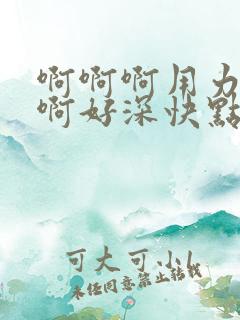 啊啊啊用力
啊好深快點
可大可小
未经同意禁止转载